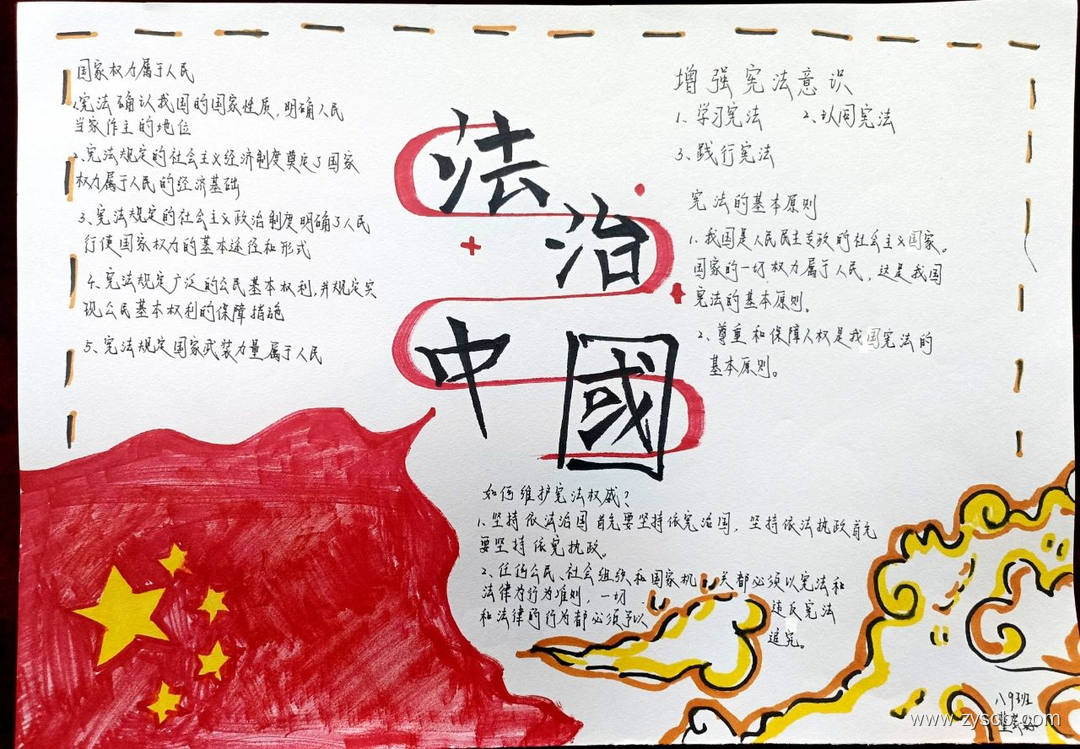 国家权力属于人民
1、宪法确认我国的国家性质，明确人民
当家作主的地位
2、宪法规定的社会主义经济制度奠定了国家
权力属于人民的经济基础
3、宪法规定的社会主义政治制度明确了人民
行使国家权力的基本途径和形式
4、宪法规定广泛的公民基本权利，并规定实
现公民基本权利的保障措施
5、宪法规定国家武装力量属于人民
法
治
中
國
增强宪法意识
1、学习宪法 2、认同宪法
3、践行宪法
宪法的基本原则
1、我国是人民民主专政的社会主义国家。
国家的一切权力属于人民，这是我国
宪法的基本原则。
2、尊重和保障人权是我国宪法的
基本原则。
如何维护宪法权威？
1、坚持依法治国首先要坚持依宪治国，坚持依法执政首先
要坚持依宪执政。
2、任何公民、社会组织和国家机关都必须以宪法和
法律为行为准则，一切 违反宪法
和法律的行为都必须予以 追究。
八9班
www.zysc